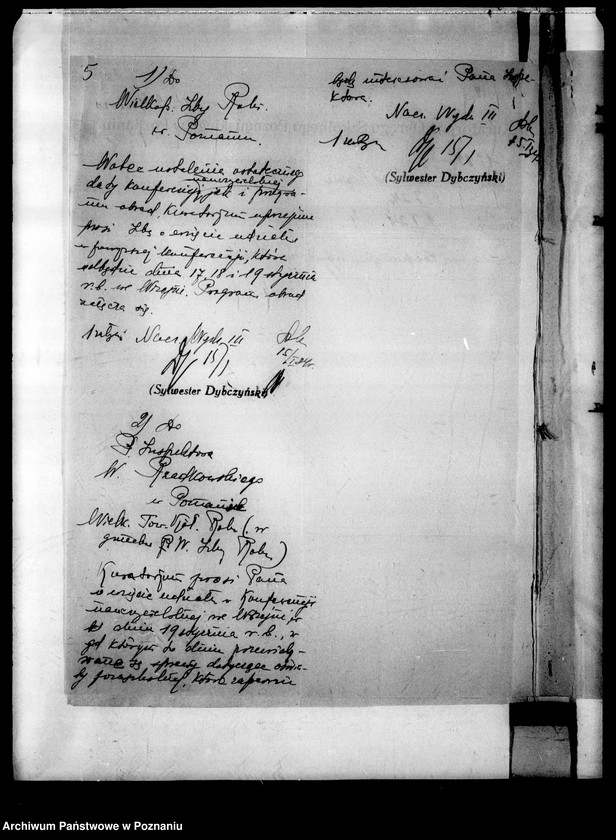 5
1/ Do
Wielkp. Izby Roln.
w Poznaniu.
Wobec ustalenia ostatecznego
nauczycielskiej
daty konferencji jak i
obrad Kuratorjum uprzejmie
prosi Izbę o wzięcie udziału
w konferencji, która
odbędzie dnia 17, 18 i 19 stycznia
r.b. we Wrześni. Program obrad
załącza się.
Nacz. Wydz III
15/1
15/I
(Sylwester Dybczyński)
2/ Do
P. Inspektora
W.
w Poznaniu
Wielk. Tow. Kół. Roln (w
gmachu W. Izby Roln)
Kuratorjum prosi Pana
o wzięcie udziału w Konferencji
nauczycielskiej we Wrześni w
dniu 19 stycznia r. b., w
którym to dniu przewidy-
wane są sprawy dotyczące oświa-
ty pozaszkolnej, które zapewne
będą interesować Pana Inspe-
ktora.
Nacz. Wydz III
15/1
(Sylwester Dybczyński)
Archiwum Państwowe w Poznaniu